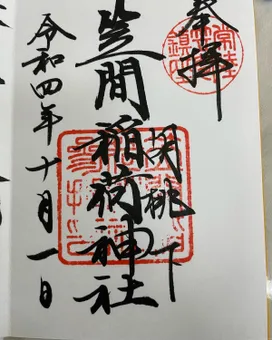 奉拝
胡桃下
笠間稲荷神社
令和四年十月一日